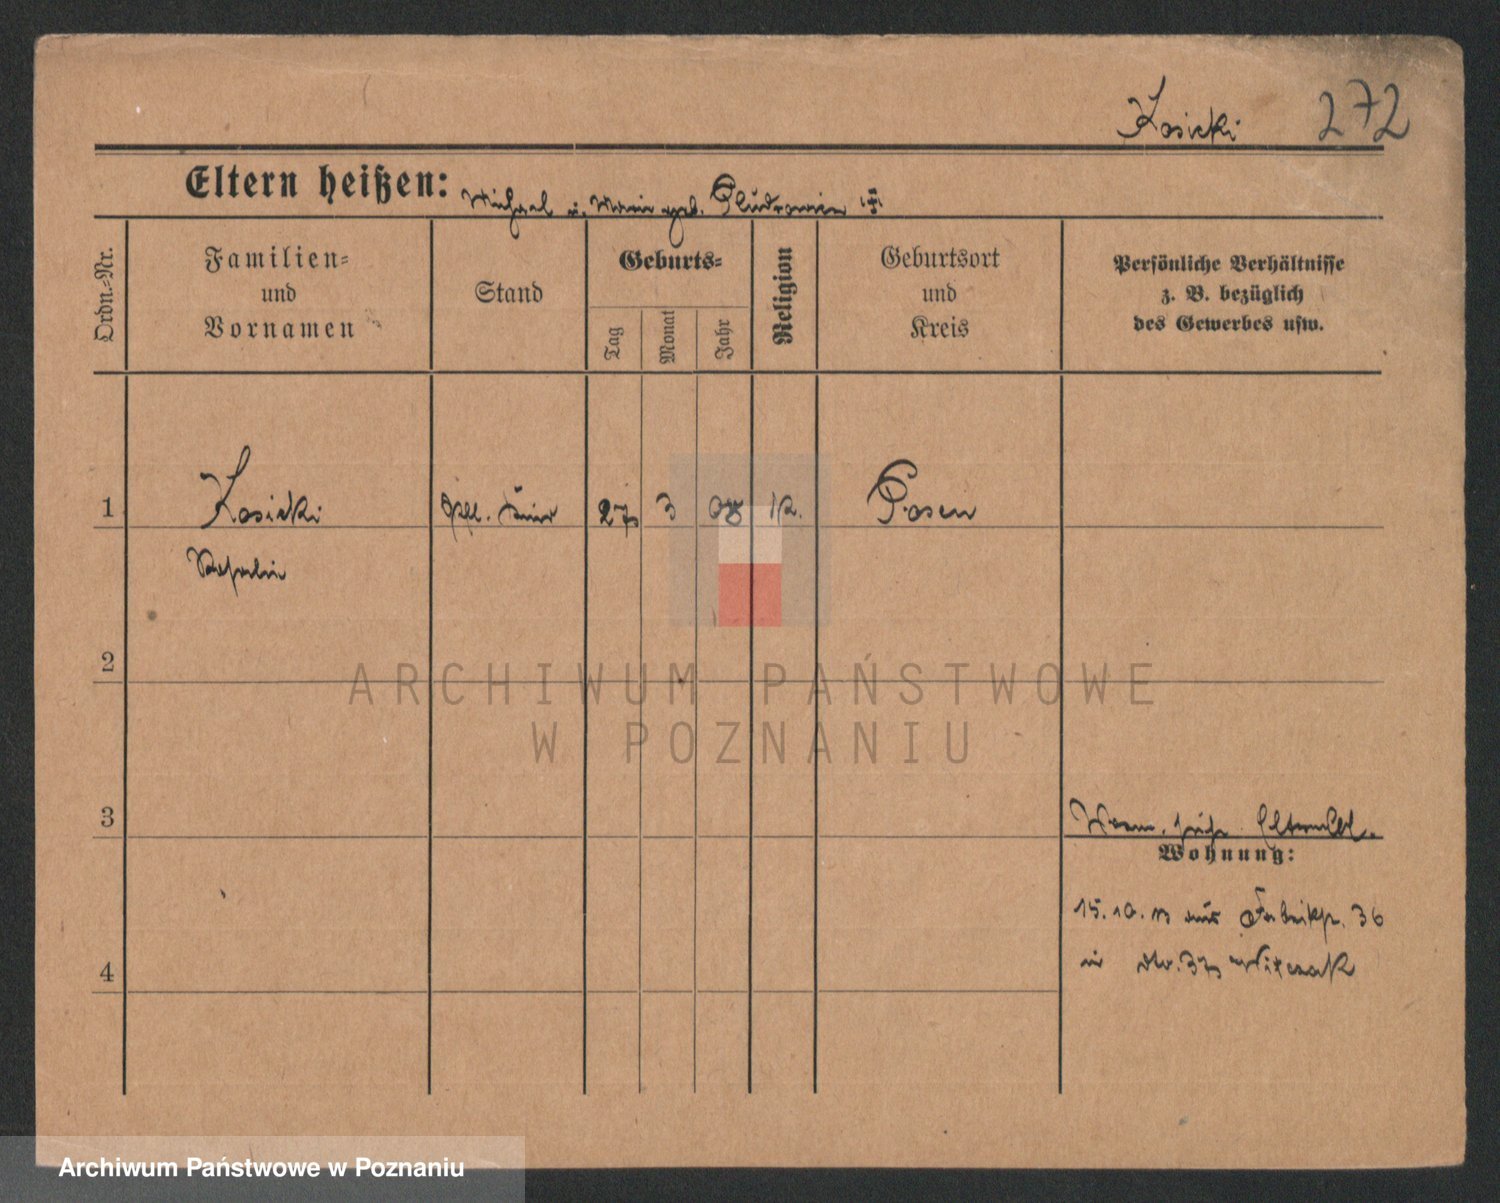 Kosicki 272
Eltern heißen: Michael u. Marie geb.
Ordn.=Nr.
Familien=
und
Vornamen
Stand
Geburts=
Tag
Monat
Jahr
Religion
Geburtsort
und
Kreis
Persönliche Verhältnisse
z. B. bezüglich
des Gewerbes usw.
1 Kosicki 27 3 08 k. Posen
2
3
Wohnung:
15. 10. 36
4
37 Witczak
ARCHIWUM PAŃSTWOWE
W POZNANIU
Archiwum Państwowe w Poznaniu